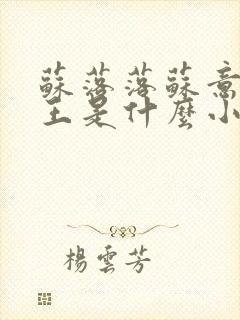 蘇落落蘇意
王是什麼小
楊雲芳